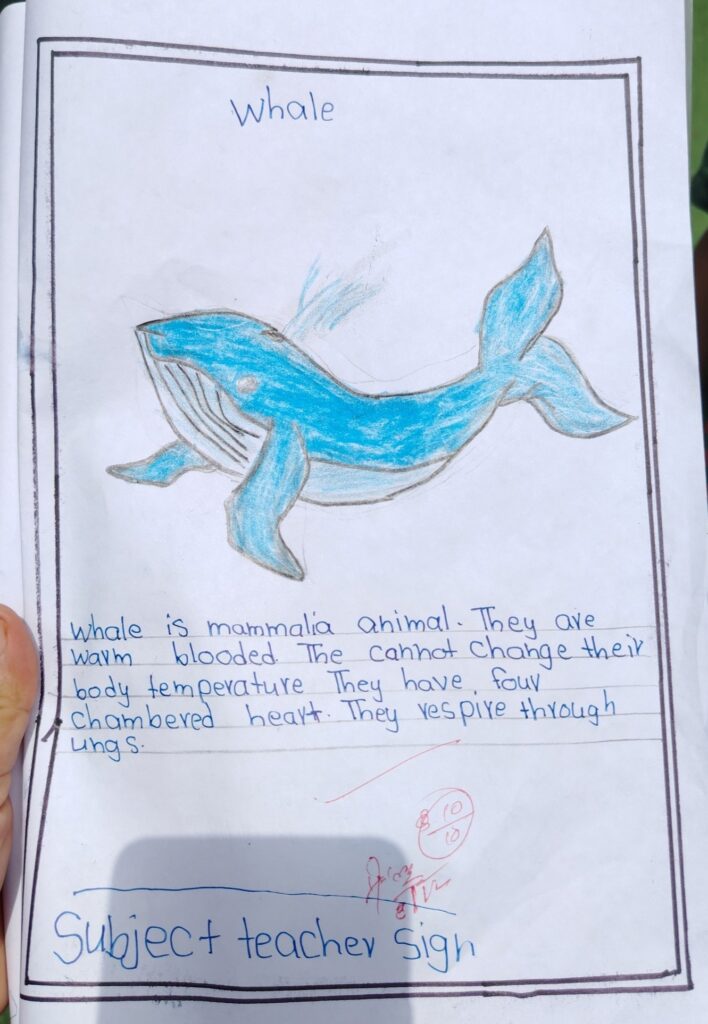 Whale
Whale is mammalia animal. They are
warm blooded The cannot change their
body temperature They have four
chambered heart. They respire through
ungs.
10
10
Subject teacher Sign